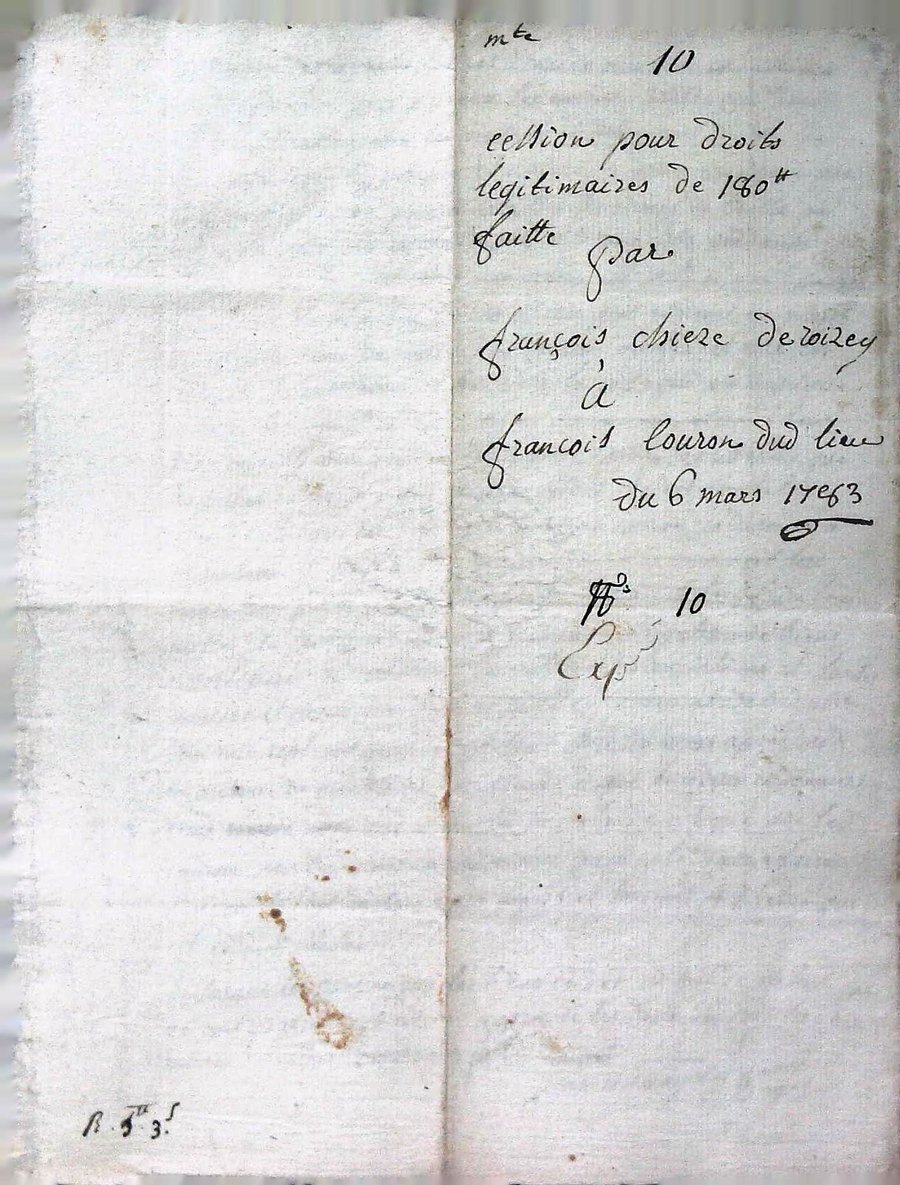 mte
10
cession pour droits
legitimaires de 180tt
faitte
par
françois chieze de roizey
à
francois Couron dud lieu
du 6 mars 1763
10
Exp
R. 5tt 3.s